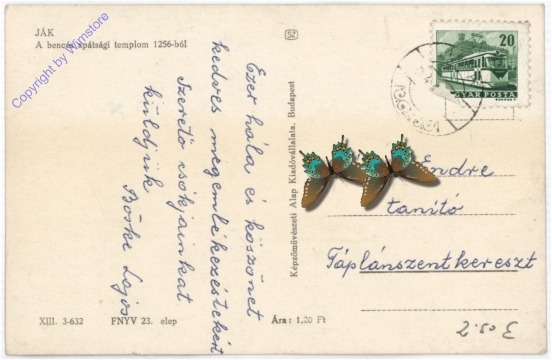 JÁK
A bencés apátsági templom 1256-ból
Copyright by Wimstore
SZ
20
MAGYAR POSTA
Ezer hála és köszönet
kedves megemlékezéstekért
Szerető csókjainkat
küldjük
Böske Lajos
Képzőművészeti Alap Kiadóvállalata, Budapest
Endre
tanító
Táplánszentkereszt
XIII. 3-632
FNYV 23. elep
Ára: 1.20 Ft